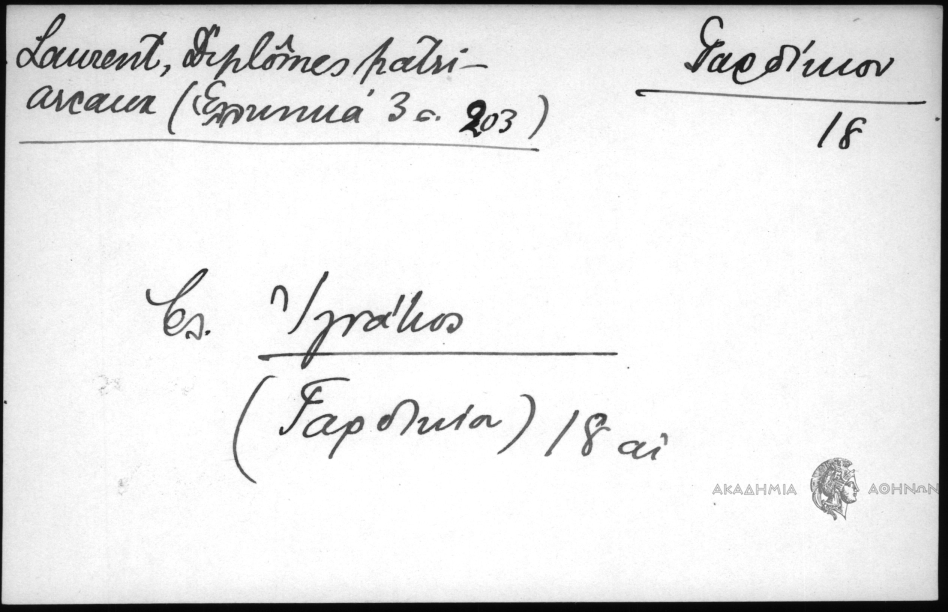 Laurent, Diplômes patri-
arcaux (Ελληνικά 3 σ. 203)
Γαρδίκιον
18
Επ. Ἰγνάτιος
(Γαρδικίου) 18 αἰ
ΑΚΑΔΗΜΙΑ ΑΘΗΝΩΝ